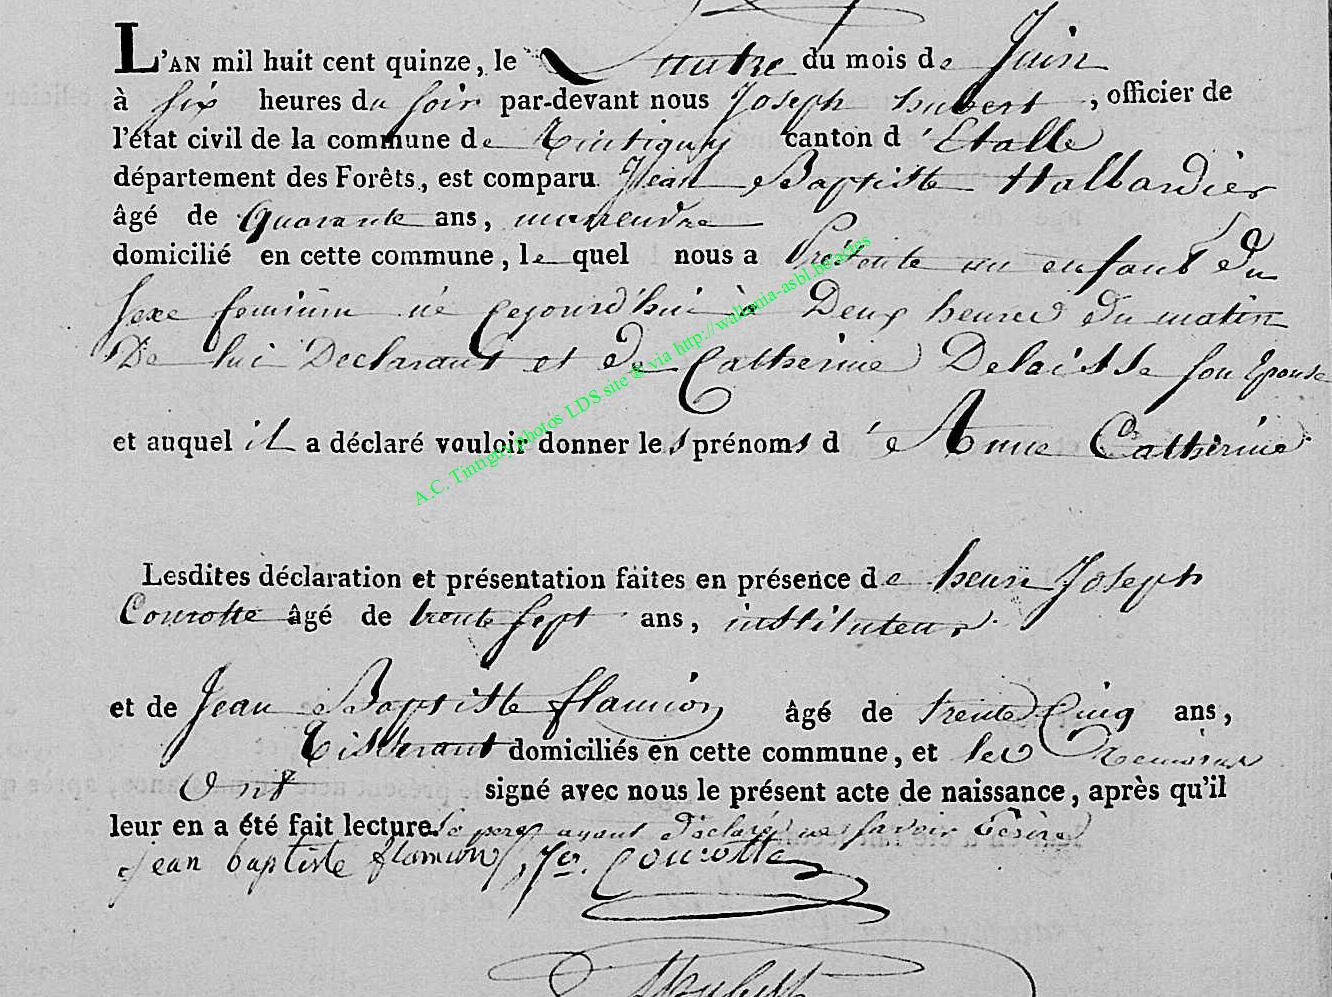 L'AN mil huit cent quinze, le Quatre du mois de Juin
à six heures du soir par-devant nous Joseph hubert, officier de
l'état civil de la commune de Tintigny canton d'Etalle
département des Forêts, est comparu Jean Baptiste Hallardier
âgé de quarante ans, manoeuvre
domicilié en cette commune, lequel nous a Présenté un enfant du
sexe feminin né cejourd'hui à Deux heures du matin
De lui Declarant et de Catherine Delaisse son Epouse
et auquel il a déclaré vouloir donner les prénoms de Anne Catherine
A.C. Tintigny photos LDS site & via http://wallonia-asbl.be/actes
Lesdites déclaration et présentation faites en présence de henri Joseph
Courotte âgé de trente sept ans, instituteur
et de Jean Baptiste flamion âgé de trente Cinq ans,
Tisserant domiciliés en cette commune, et les Temoins
Ont signé avec nous le présent acte de naissance, après qu'il
leur en a été fait lecture le pere ayant declaré ne savoir Ecrire
jean baptiste flamion Courotte